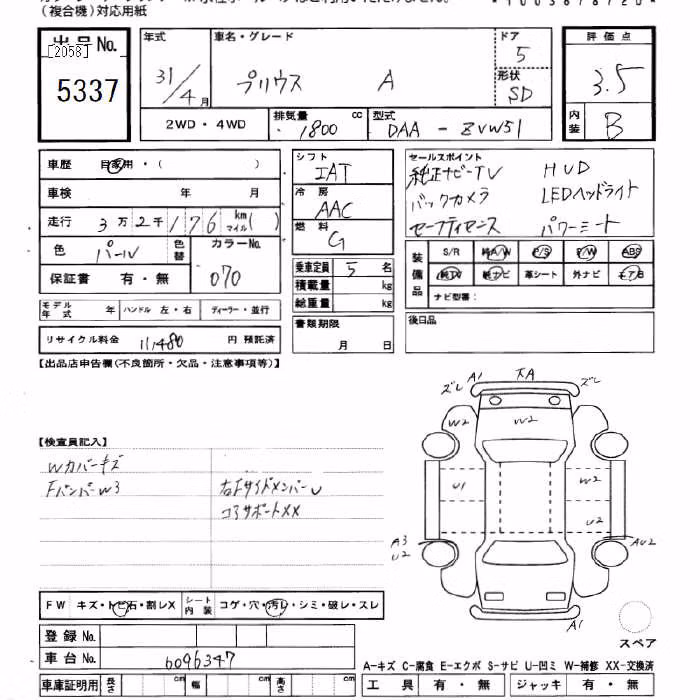 (複合機)対応用紙
出品No.
[2058]
5337
年式
31/4月
車名・グレード
プリウス A
ドア
5
形状
SD
評価点
3.5
内装
B
2WD・4WD
排気量 1800 cc
型式
DAA - ZVW51
車歴 自家用・( )
車検 年 月
走行 3万2千176 km マイル( )
色 パール
色替
カラーNo.
070
保証書 有・無
モデル年式 年
ハンドル 左・右
ディーラー・並行
リサイクル料金 11,480 円 預託済
シフト
IAT
冷房
AAC
燃料
G
乗車定員 5 名
積載量 kg
総重量 kg
書類期限
月 日
セールスポイント
純正ナビ-TV HUD
バックカメラ LEDヘッドライト
セーフティセンス パワーシート
装備品
S/R 純A/W P/S P/W ABS
純TV 純ナビ 革シート 外ナビ エアB
ナビ型番:
後日品
【出品店申告欄(不良箇所・欠品・注意事項等)】
【検査員記入】
Wカバーキズ
FバンパーW3
右FサイドメンバーU
コアサポートXX
ズレ A1 大A ズレ
W2 W2 W2
U1 W2
U2
A3
U2
AU2
A1
スペア
FW キズ・トビ石・割レX
シート内装 コゲ・穴・汚レ・シミ・破レ・スレ
登録No.
車台No. 6096347
A-キズ C-腐食 E-エクボ S-サビ U-凹ミ W-補修 XX-交換済
車庫証明用 長さ cm 幅 cm 高さ cm
工具 有・無 ジャッキ 有・無